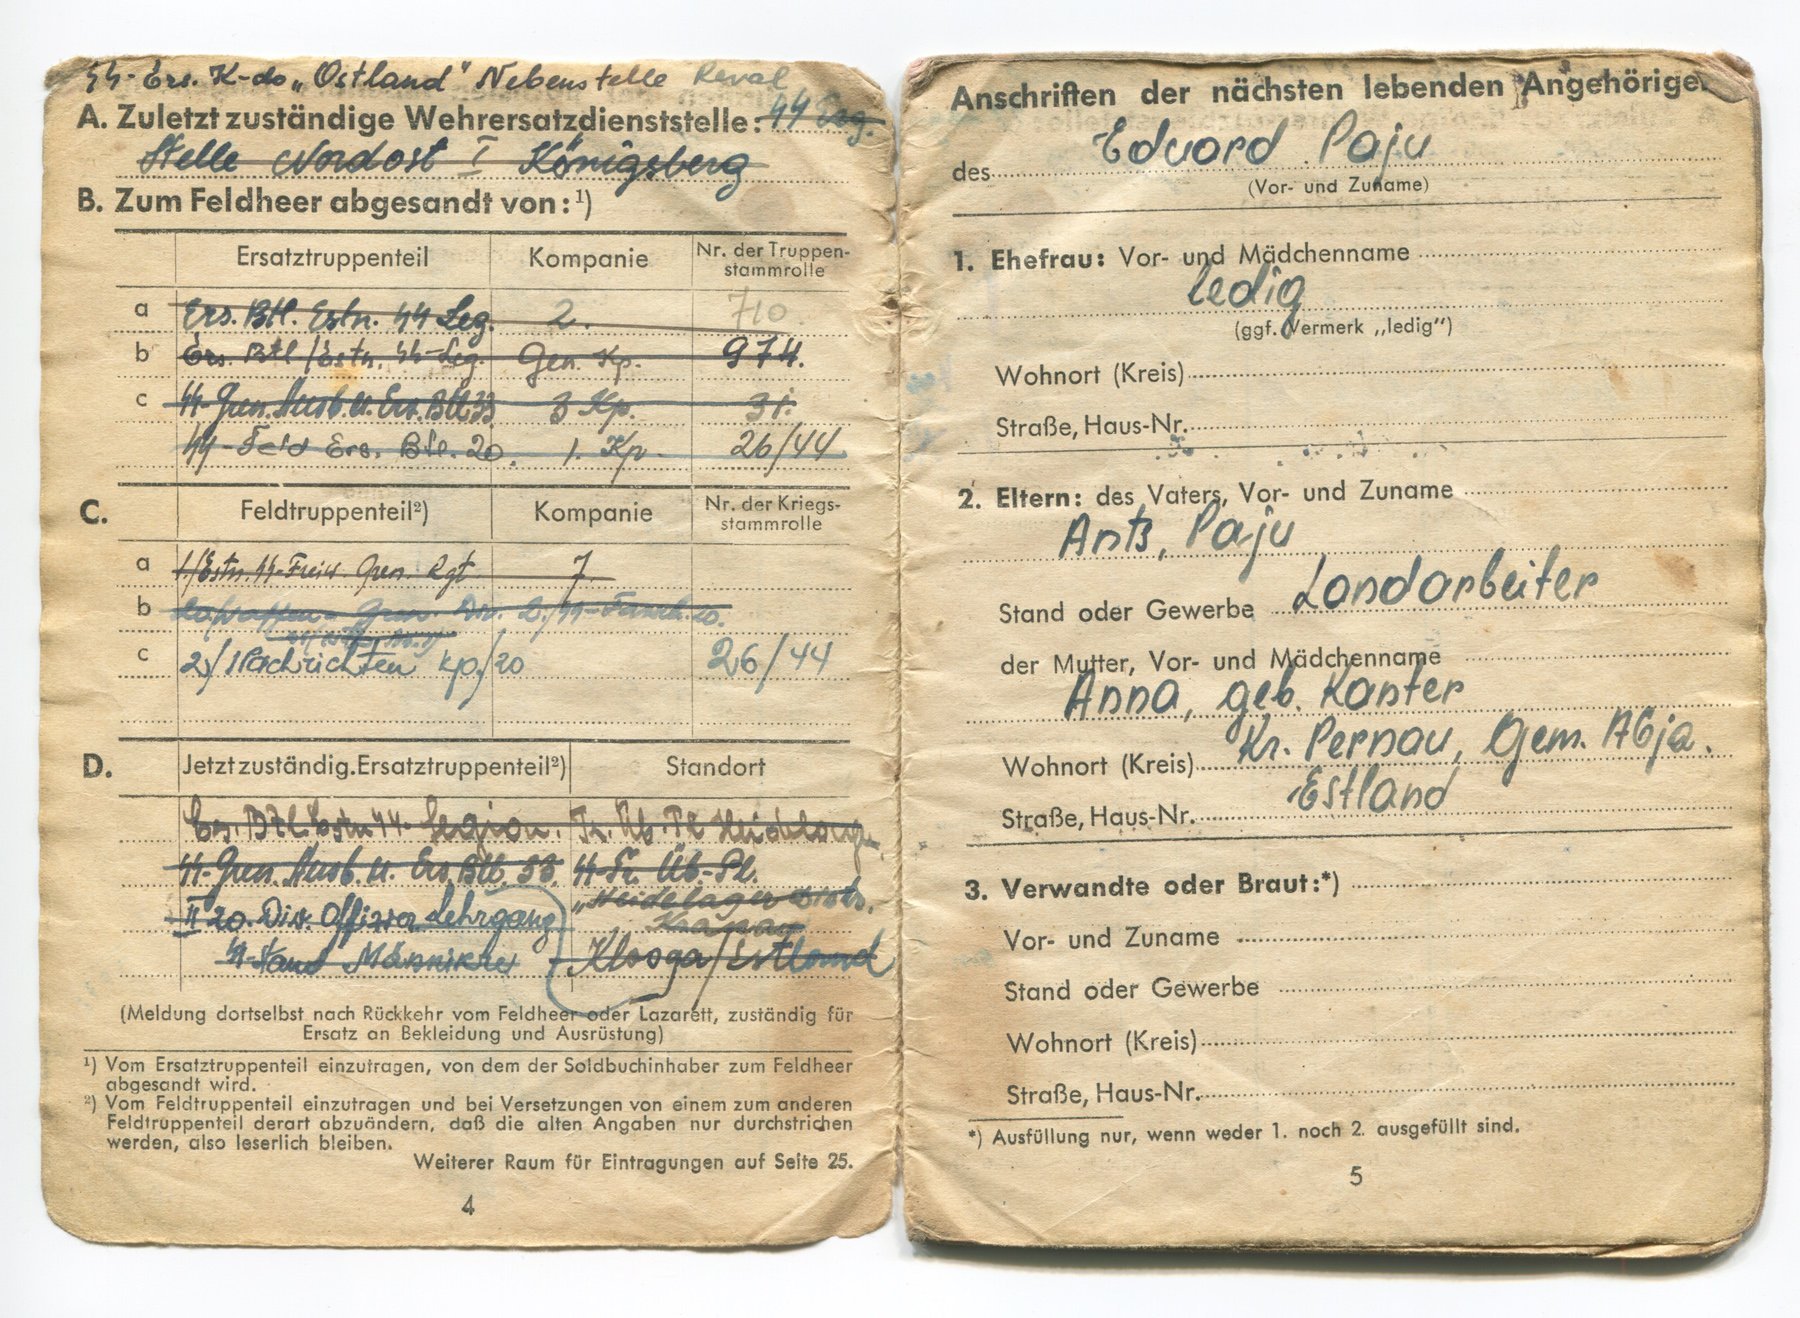 SS-Ers. K-do „Ostland" Nebenstelle Reval
A. Zuletzt zuständige Wehrersatzdienststelle: SS Erg.
Stelle Nordost I Königsberg
B. Zum Feldheer abgesandt von:¹)
Ersatztruppenteil Kompanie Nr. der Truppen-
stammrolle
a Ers. Btl. Estn. SS Leg. 2. 710
b Ers. Btl/Estn. SS-Leg. Gen. Kp. 974.
c SS-Gren. Ausb. u. Ers. Btl. 33 3 Kp. 31.
SS-Feld Ers. Btl. 20. 1. Kp. 26/44
C. Feldtruppenteil²) Kompanie Nr. der Kriegs-
stammrolle
a 1/Estn. SS-Freiw. Gren. Rgt. 7.
b
c 2/Nachrichten Kp./20 26/44
D. Jetzt zuständig. Ersatztruppenteil²) Standort
Ers. Btl. Estn. SS-Legion. Tr. Üb. Pl. Heidelager
SS-Gren. Ausb. u. Ers. Btl. 33. SS-Tr. Üb-Pl.
20. Div. Lehrgang „Heidelager
Männiku Klooga/Estland
(Meldung dortselbst nach Rückkehr vom Feldheer oder Lazarett, zuständig für
Ersatz an Bekleidung und Ausrüstung)
¹) Vom Ersatztruppenteil einzutragen, von dem der Soldbuchinhaber zum Feldheer
abgesandt wird.
²) Vom Feldtruppenteil einzutragen und bei Versetzungen von einem zum anderen
Feldtruppenteil derart abzuändern, daß die alten Angaben nur durchstrichen
werden, also leserlich bleiben.
Weiterer Raum für Eintragungen auf Seite 25.
4
Anschriften der nächsten lebenden Angehörige
des Eduard Paju
(Vor- und Zuname)
1. Ehefrau: Vor- und Mädchenname
ledig
(ggf. Vermerk „ledig")
Wohnort (Kreis)
Straße, Haus-Nr.
2. Eltern: des Vaters, Vor- und Zuname
Ants, Paju
Stand oder Gewerbe Landarbeiter
der Mutter, Vor- und Mädchenname
Anna, geb. Kanter
Wohnort (Kreis) Kr. Pernau, Gem. Abja.
Straße, Haus-Nr. Estland
3. Verwandte oder Braut:*)
Vor- und Zuname
Stand oder Gewerbe
Wohnort (Kreis)
Straße, Haus-Nr.
*) Ausfüllung nur, wenn weder 1. noch 2. ausgefüllt sind.
5